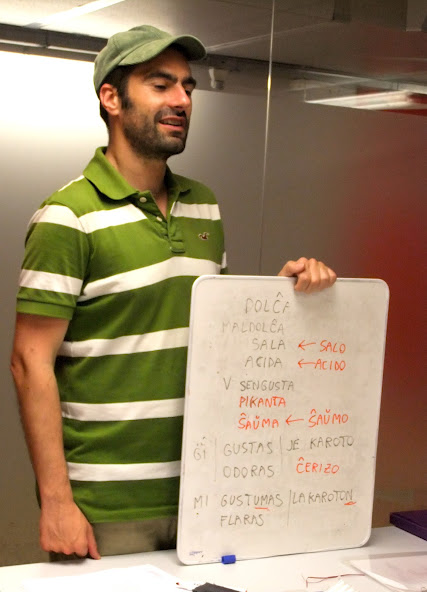 DOLĈA
MALDOLĈA
SALA ← SALO
ACIDA ← ACIDO
V SENGUSTA
PIKANTA
ŜAŬMA ← ŜAŬMO
ĜI GUSTAS | JE KAROTO
ODORAS ĈERIZO
MI GUSTUMAS | LA KAROTON
FLARAS